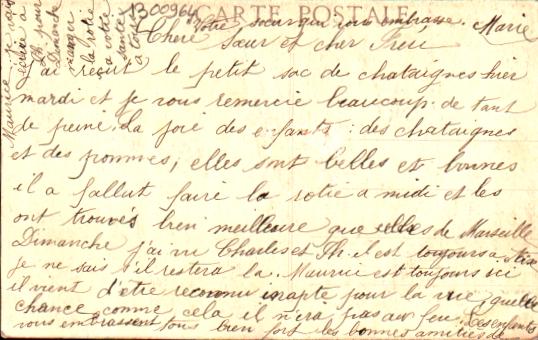 B009964
CARTE POSTALE
votre soeur qui vous embrasse. Marie
Chere Sœur et cher Frere
J'ai recuit le petit sac de chataignes hier
mardi et je vous remercie beaucoup. de tant
de peine. La joie des enfants : des chataignes
et des pommes, elles sont belles et bonnes
il a fallut faire la rotie a midi et les
ont trouvés bien meilleure que celles de Marseille
Dimanche j'ai vu Charles et Th. il est toujours a
je ne sais s'il restera la. Maurice est toujours ici
il vient d'etre reconnu inapte pour la vue, quelle
chance comme cela il n'ira pas au feu. Les enfants
vous embrassent tous bien fort les bonnes amitiés de
Maurice je vais
ecrire a
Th. pour
Dimanche
manger
la rotie
a votre
santée
a tous